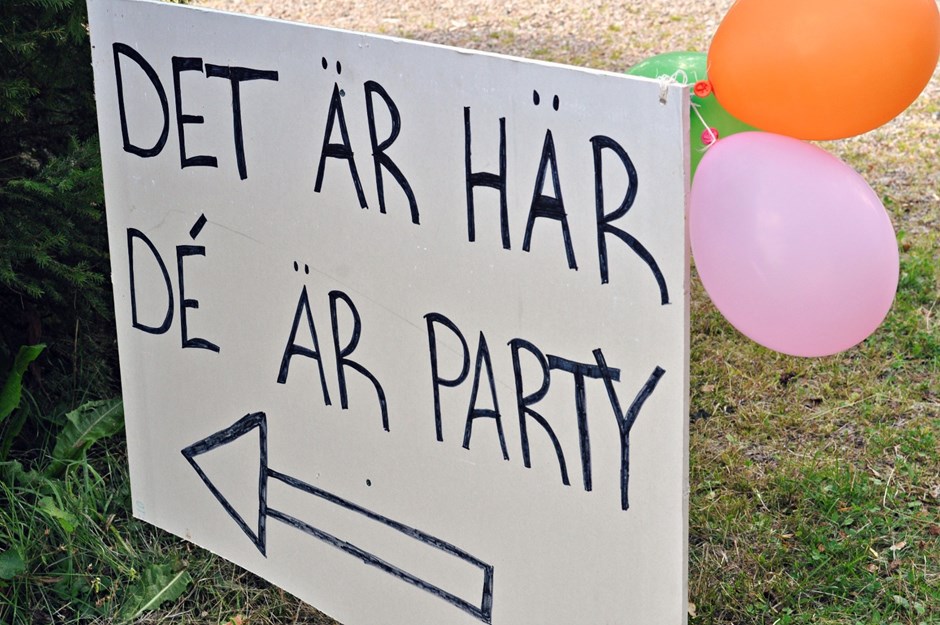 DET ÄR HÄR
DÉ ÄR PARTY